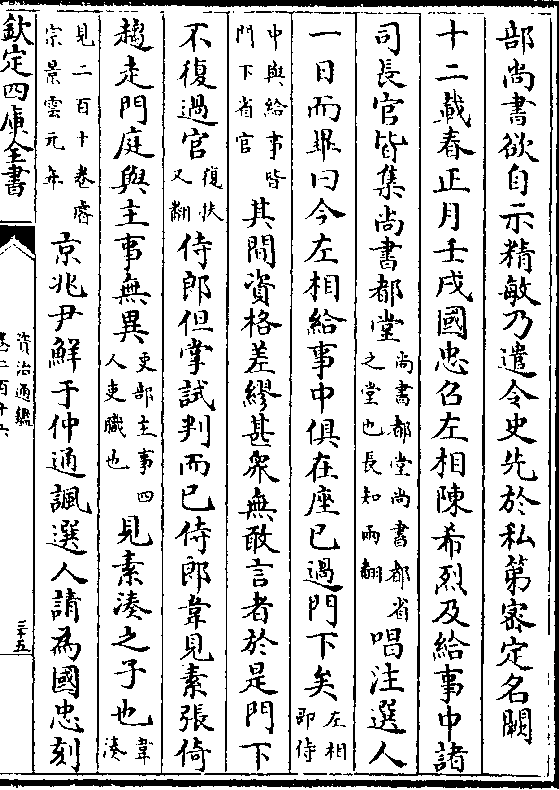 部尚書欲自示精敏乃遣令史先於私第密定名闕
十二載春正月壬戌國忠召左相陳希烈及給事中諸
司長官皆集尚書都堂尚書都堂尚書都省之堂也長知兩翻唱注選人
一日而畢曰今左相給事中俱在座已過門下矣左相即侍
中與給事皆門下省官其間資格差繆甚衆無敢言者於是門下
不復過官復扶又翻侍郎但掌試判而已侍郎韋見素張倚
趨走門庭與主事無異吏部主事四人吏職也見素湊之子也韋湊
見二百十卷睿宗景雲元年京兆尹鮮于仲通諷選人請為國忠刻
欽定四庫全書
資治通鑑
卷二百十六
三十五